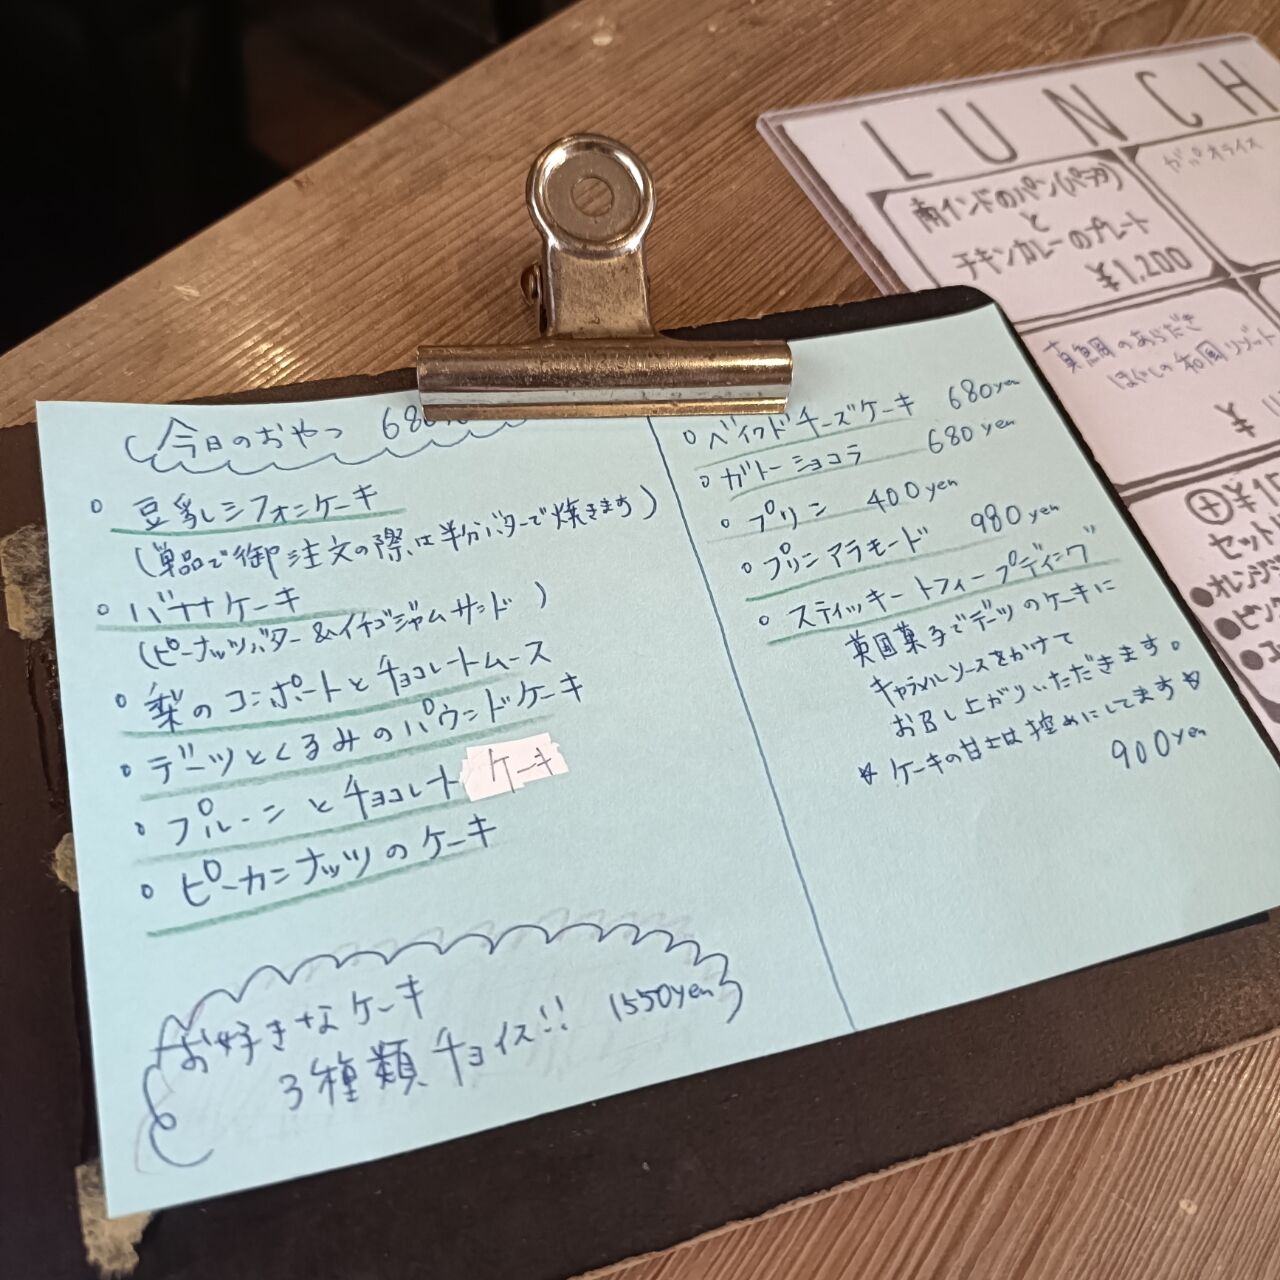 今日のおやつ 680
○ 豆乳シフォンケーキ
(単品で御注文の際は半分バターで焼きます)
○ バナナケーキ
(ピーナッツバター&イチゴジャムサンド)
○ 梨のコンポートとチョコレートムース
○ デーツとくるみのパウンドケーキ
○ プルーンとチョコレートケーキ
○ ピーカンナッツのケーキ
お好きなケーキ
3種類チョイス!! 1550yen
○ ベイクドチーズケーキ 680yen
○ ガトーショコラ 680yen
○ プリン 400yen
○ プリンアラモード 980yen
○ スティッキートフィープディング
英国菓子でデーツのケーキに
キャラメルソースをかけて
お召し上がりいただきます。
☆ケーキの甘さは控めにしてます☆
900yen
LUNCH
南インドのパン(パラタ)
と
チキンカレーのプレート
¥1,200
ガパオライス
真鯛のあらだき
ほぐしの和風リゾット
¥
⊕¥1
セット
●オレンジ